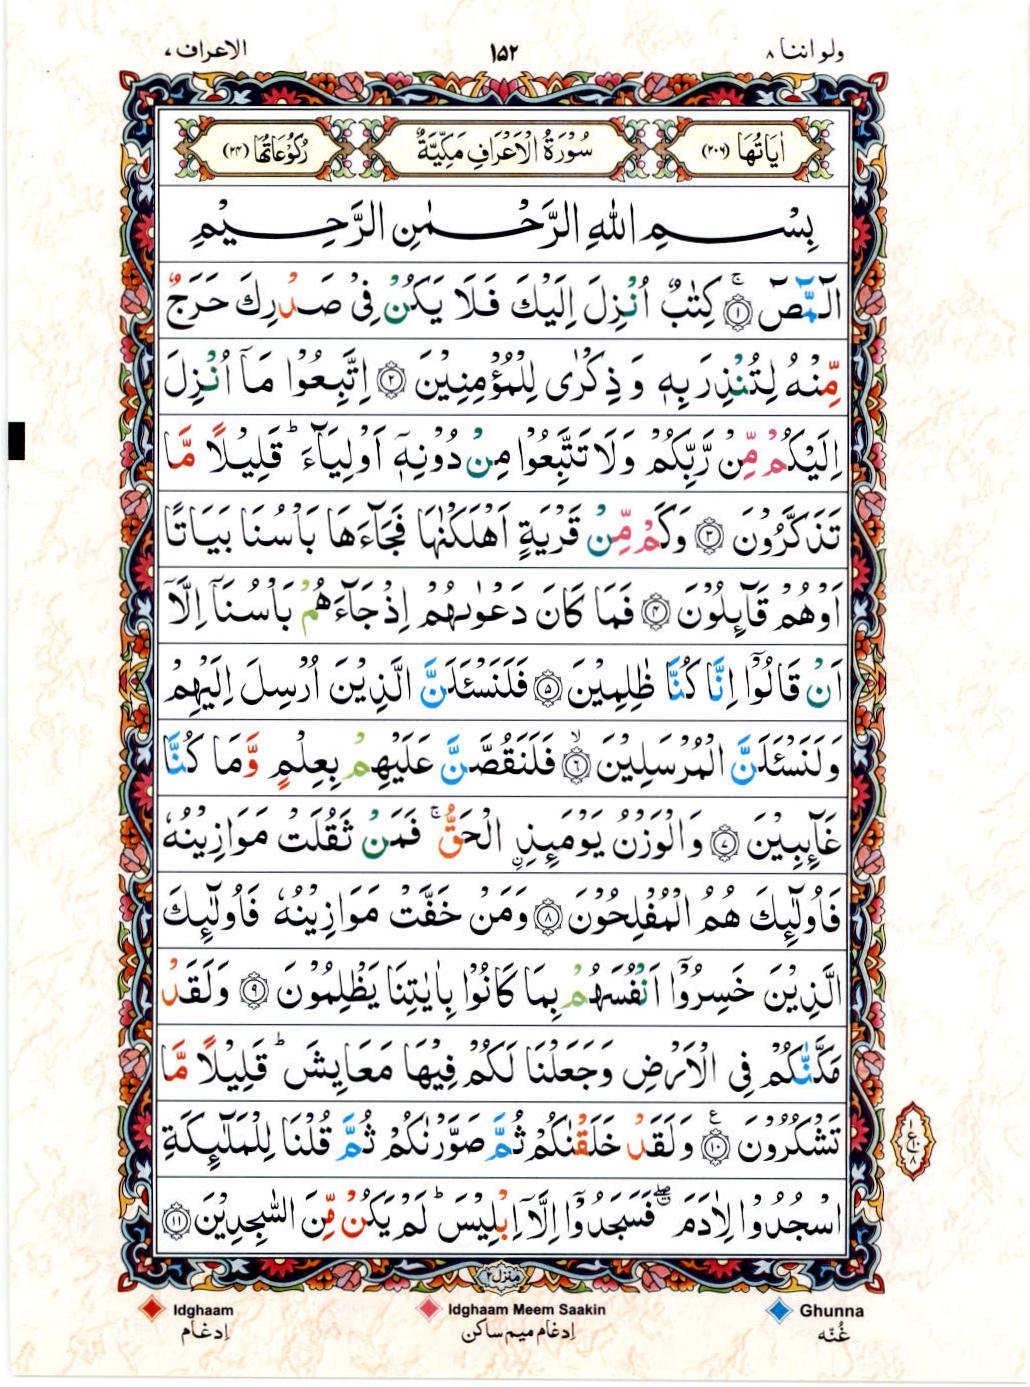 ولو اننا ۸
۱۵۲
الاعراف ۷
اٰيَاتُهَا (۲۰۶)
سُوْرَةُ الْاَعْرَافِ مَكِّيَّةٌ
رُكُوْعَاتُهَا (۲۴)
بِسْمِ اللهِ الرَّحْمٰنِ الرَّحِيْمِ
الٓمّٓصٓ ۚ‏﴿۱﴾ كِتٰبٌ اُنْزِلَ اِلَيْكَ فَلَا يَكُنْ فِىْ صَدْرِكَ حَرَجٌ
مِّنْهُ لِتُنْذِرَ بِهٖ وَ ذِكْرٰى لِلْمُؤْمِنِيْنَ ﴿۲﴾ اِتَّبِعُوْا مَاۤ اُنْزِلَ
اِلَيْكُمْ مِّنْ رَّبِّكُمْ وَلَا تَتَّبِعُوْا مِنْ دُوْنِهٖۤ اَوْلِيَآءَ ؕ قَلِيْلًا مَّا
تَذَكَّرُوْنَ ﴿۳﴾ وَكَمْ مِّنْ قَرْيَةٍ اَهْلَكْنٰهَا فَجَآءَهَا بَاْسُنَا بَيَاتًا
اَوْ هُمْ قَآئِلُوْنَ ﴿۴﴾ فَمَا كَانَ دَعْوٰٮهُمْ اِذْ جَآءَهُمْ بَاْسُنَاۤ اِلَّاۤ
اَنْ قَالُوْۤا اِنَّا كُنَّا ظٰلِمِيْنَ ﴿۵﴾ فَلَنَسْئَلَنَّ الَّذِيْنَ اُرْسِلَ اِلَيْهِمْ
وَلَنَسْئَلَنَّ الْمُرْسَلِيْنَ ۙ﴿۶﴾ فَلَنَقُصَّنَّ عَلَيْهِمْ بِعِلْمٍ وَّمَا كُنَّا
غَآئِبِيْنَ ﴿۷﴾ وَالْوَزْنُ يَوْمَئِذِ ۨالْحَقُّ ۚ فَمَنْ ثَقُلَتْ مَوَازِيْنُهٗ
فَاُولٰٓئِكَ هُمُ الْمُفْلِحُوْنَ ﴿۸﴾ وَمَنْ خَفَّتْ مَوَازِيْنُهٗ فَاُولٰٓئِكَ
الَّذِيْنَ خَسِرُوْۤا اَنْفُسَهُمْ بِمَا كَانُوْا بِاٰيٰتِنَا يَظْلِمُوْنَ ﴿۹﴾ وَلَقَدْ
مَكَّنّٰكُمْ فِى الْاَرْضِ وَجَعَلْنَا لَكُمْ فِيْهَا مَعَايِشَ ؕ قَلِيْلًا مَّا
تَشْكُرُوْنَ ﴿۱۰﴾ع وَلَقَدْ خَلَقْنٰكُمْ ثُمَّ صَوَّرْنٰكُمْ ثُمَّ قُلْنَا لِلْمَلٰٓئِكَةِ
اسْجُدُوْا لِاٰدَمَ ۖ فَسَجَدُوْۤا اِلَّاۤ اِبْلِيْسَ ؕ لَمْ يَكُنْ مِّنَ السّٰجِدِيْنَ ﴿۱۱﴾
منزل ۲
Idghaam
Idghaam Meem Saakin
Ghunna
اِدغام
اِدغام میم ساکن
غُنّه